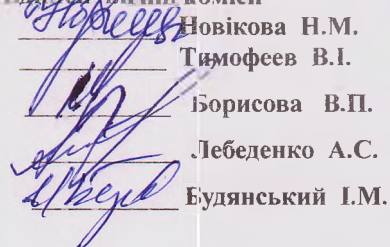 Новікова Н.М.
Тимофеев В.І.
Борисова В.П.
Лебеденко А.С.
Будянський І.М.